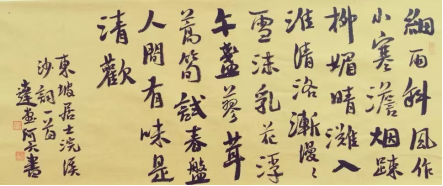 細雨斜風作
小寒澹烟疎
柳媚晴灘入
淮清洛漸漫〻
雪沫乳花浮
午盞蓼茸
蒿筍試春盤
人間有味是
清歡
東坡居士浣溪
沙詞一首